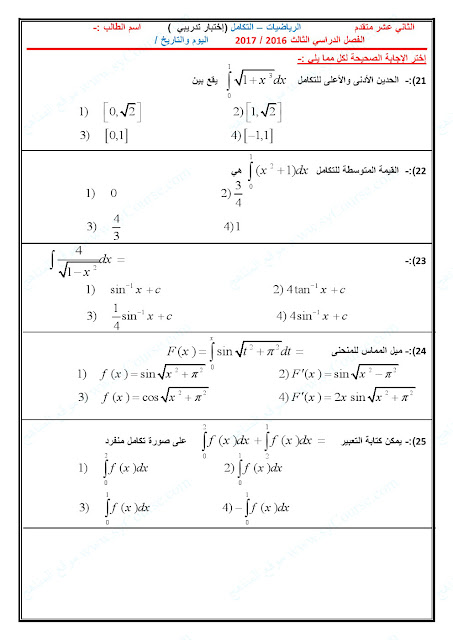 الثاني عشر متقدم الرياضيات – التكامل (إختبار تدريبي ) اسم الطالب :-
الفصل الدراسي الثالث 2016 / 2017 اليوم والتاريخ /
إختر الإجابة الصحيحة لكل مما يلي :-
21):- الحدين الأدنى والأعلى للتكامل ∫₀¹ √(1 + x³) dx يقع بين
1) [0,√2] 2) [1,√2]
3) [0,1] 4) [-1,1]
22):- القيمة المتوسطة للتكامل ∫₀¹ (x² +1)dx هي
1) 0 2) 3/4
3) 4/3 4) 1
23):- ∫ 4/√(1-x²) dx =
1) sin⁻¹ x + c 2) 4 tan⁻¹ x + c
3) 1/4 sin⁻¹ x + c 4) 4 sin⁻¹ x + c
24):- ميل المماس للمنحنى F(x) = ∫₀ˣ sin √(t² + π²) dt =
1) f (x) = sin √(x² + π²) 2) F′(x) = sin √(x² − π²)
3) f (x) = cos √(x² + π²) 4) F′(x) = 2x sin √(x² + π²)
25):- يمكن كتابة التعبير ∫₀² f (x)dx + ∫₂¹ f (x)dx = على صورة تكامل منفرد
1) ∫₀² f (x)dx 2) ∫₀¹ f (x)dx
3) ∫₀¹ f (x)dx 4) −∫₀² f (x)dx